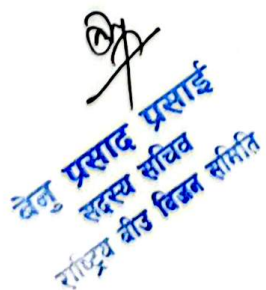 वेनु प्रसाद प्रसाई
सदस्य सचिव
राष्ट्रिय बीउ बिजन समिति